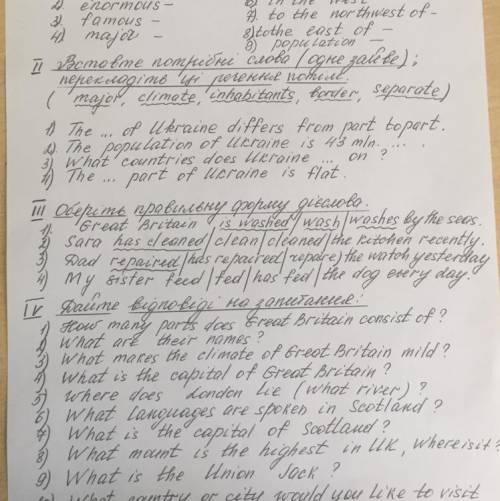 2) enormous –
6) in the west
3) famous –
7. to the northwest of –
4) major –
8) to the east of –
9) population –
II Вставте потрібні слова (одне зайве);
перекладіть ці речення потім.
( major, climate, inhabitants, border, separate)
1) The ... of Ukraine differs from part to part.
2) The population of Ukraine is 43 mln. ... .
3) What countries does Ukraine ... on ?
4) The ... part of Ukraine is flat.
III Оберіть правильну форму дієслова.
1). Great Britain is washed/wash/washes by the seas.
2) Sara has cleaned/clean/cleaned/the kitchen recently.
3) Dad repaired/has repaired/repaire) the watch yesterday
4) My sister feed/fed/has fed/the dog every day.
IV Дайте відповіді на запитання:
1) How many parts does Great Britain consist of ?
2) What are their names ?
3) What makes the climate of Great Britain mild ?
4) What is the capital of Great Britain ?
5) Where does London lie (what river) ?
6) What languages are spoken in Scotland ?
7) What is the capital of Scotland ?
8) What mount is the highest in UK, where is it ?
9) What is the Union Jack ?
10) What country or city would you like to visit